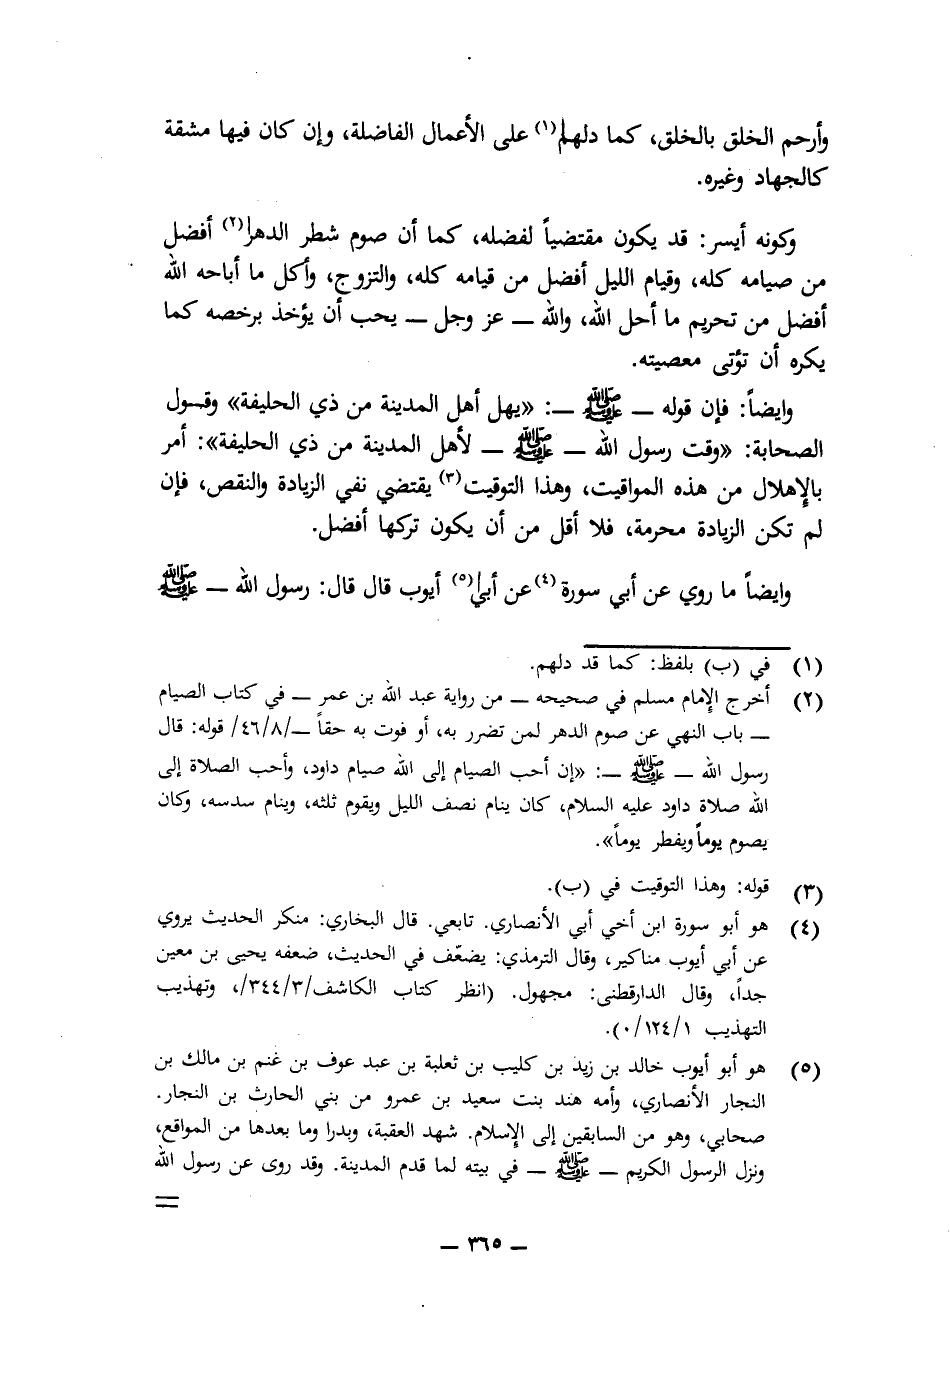 وأرحم الخلق بالخلق، كما دلهم(١) على الأعمال الفاضلة، وإن كان فيها مشقة
كالجهاد وغيره.
وكونه أيسر: قد يكون مقتضياً لفضله، كما أن صوم شطر الدهر(٢) أفضل
من صيامه كله، وقيام الليل أفضل من قيامه كله، والتزوج، وأكل ما أباحه الله
أفضل من تحريم ما أحل الله، والله ــ عز وجل ــ يحب أن يؤخذ برخصه كما
يكره أن تؤتى معصيته.
وايضاً: فإن قوله ــ ﷺ ــ: «يهل أهل المدينة من ذي الحليفة» وقول
الصحابة: «وقت رسول الله ــ ﷺ ــ لأهل المدينة من ذي الحليفة»: أمر
بالإهلال من هذه المواقيت، وهذا التوقيت(٣) يقتضي نفي الزيادة والنقص، فإن
لم تكن الزيادة محرمة، فلا أقل من أن يكون تركها أفضل.
وايضاً ما روي عن أبي سورة(٤) عن أبي(٥) أيوب قال قال: رسول الله ــ ﷺ
(١) في (ب) بلفظ: كما قد دلهم.
(٢) أخرج الإمام مسلم في صحيحه ــ من رواية عبد الله بن عمر ــ في كتاب الصيام
ــ باب النهي عن صوم الدهر لمن تضرر به، أو فوت به حقاً ــ/٤٦/٨/ قوله: قال
رسول الله ــ ﷺ ــ: «إن أحب الصيام إلى الله صيام داود، وأحب الصلاة إلى
الله صلاة داود عليه السلام، كان ينام نصف الليل ويقوم ثلثه، وينام سدسه، وكان
يصوم يوماً ويفطر يوماً».
(٣) قوله: وهذا التوقيت في (ب).
(٤) هو أبو سورة ابن أخي أبي الأنصاري. تابعي. قال البخاري: منكر الحديث يروي
عن أبي أيوب مناكير، وقال الترمذي: يضعّف في الحديث، ضعفه يحيى بن معين
جداً، وقال الدارقطنى: مجهول. (انظر كتاب الكاشف/٣٤٤/٣/، وتهذيب
التهذيب ٠/١٢٤/١).
(٥) هو أبو أيوب خالد بن زيد بن كليب بن ثعلبة بن عبد عوف بن غنم بن مالك بن
النجار الأنصاري، وأمه هند بنت سعيد بن عمرو من بني الحارث بن النجار.
صحابي، وهو من السابقين إلى الإسلام. شهد العقبة، وبدرا وما بعدها من المواقع،
ونزل الرسول الكريم ــ ﷺ ــ في بيته لما قدم المدينة. وقد روى عن رسول الله
=
ــ ٣٦٥ ــ